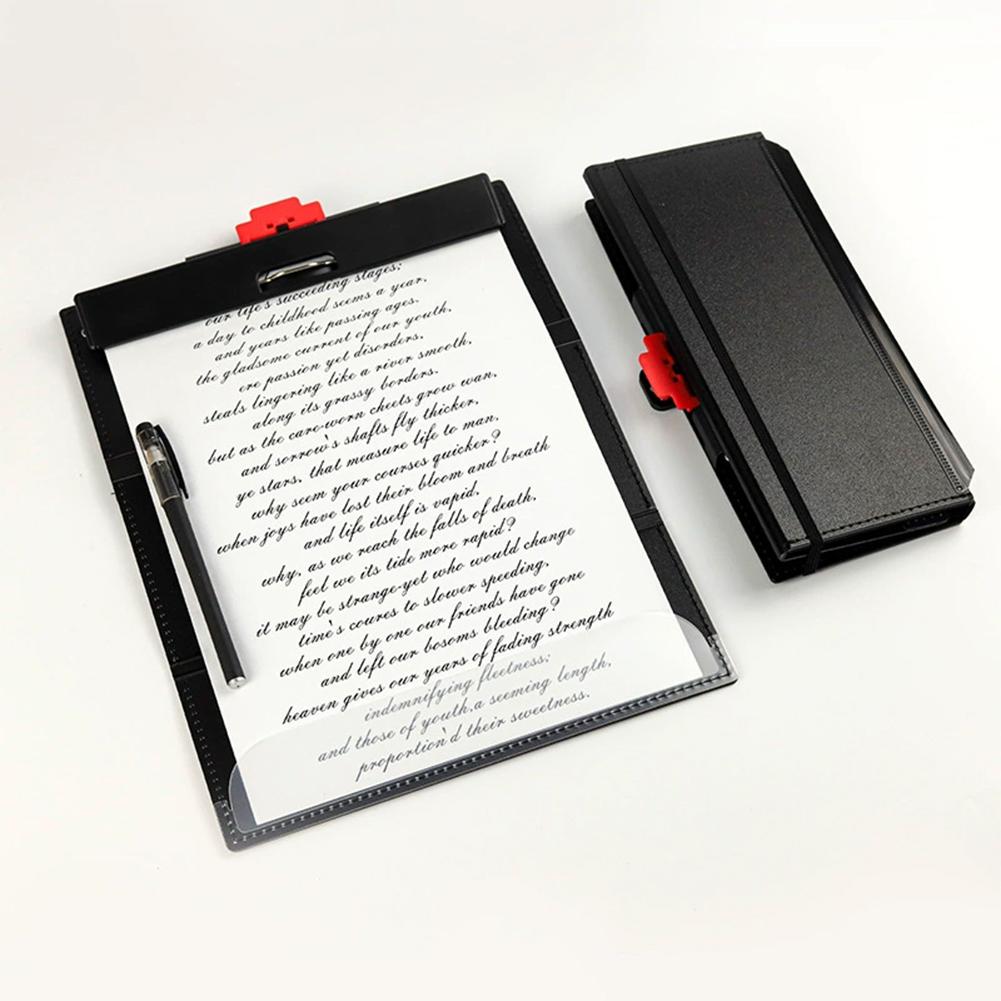 our life's succeeding stages;
a day to childhood seems a year,
and years like passing ages.
the gladsome current of our youth,
ere passion yet disorders,
steals lingering like a river smooth,
along its grassy borders.
but as the care-worn cheets grow wan,
and sorrow's shafts fly thicker,
ye stars, that measure life to man,
why seem your courses quicker?
when joys have lost their bloom and breath
and life itself is vapid,
why, as we reach the falls of death,
feel we its tide more rapid?
it may be strange-yet who would change
time's coures to slower speeding,
when one by one our friends have gone
and left our bosoms bleeding?
heaven gives our years of fading strength
indemnifying fleetness;
and those of youth,a seeming length,
proportion'd their sweetness.